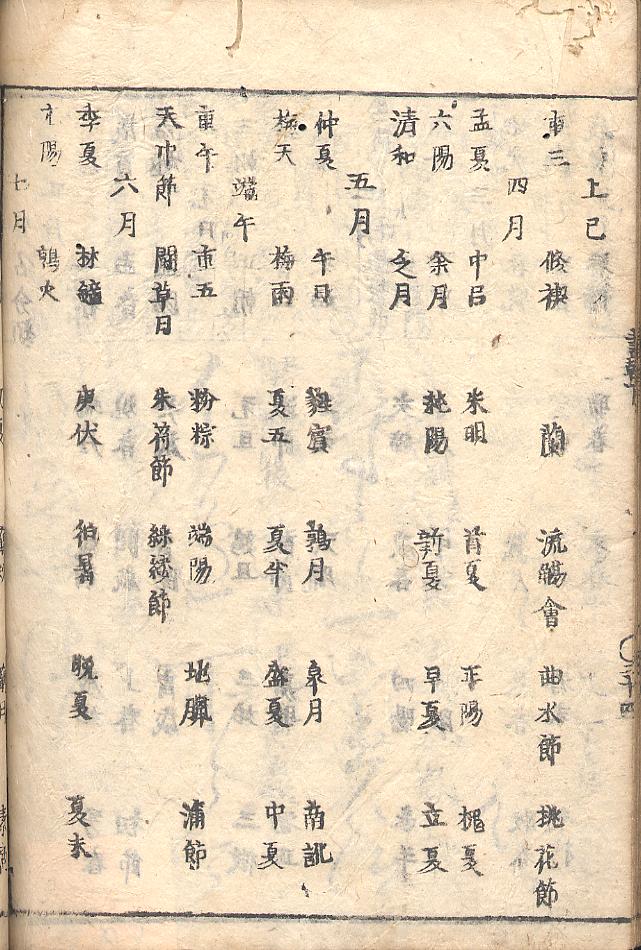 上巳
重三 修禊 蘭 流觴會 曲水節 桃花節
四月
孟夏 中呂 朱明 首夏 正陽 槐夏
六陽 余月 純陽 新夏 早夏 立夏
清和 乏月
五月
仲夏 午月 蕤賓 鶉月 皐月 南訛
梅天 梅雨 夏五 夏半 盛夏 中夏
端午
重午 重五 粉粽 端陽 地臘 蒲節
天中節 鬪草日 朱符節 綵縷節
六月
季夏 林鐘 庚伏 徂暑 晚夏 夏末
鶉火
七月
二十四